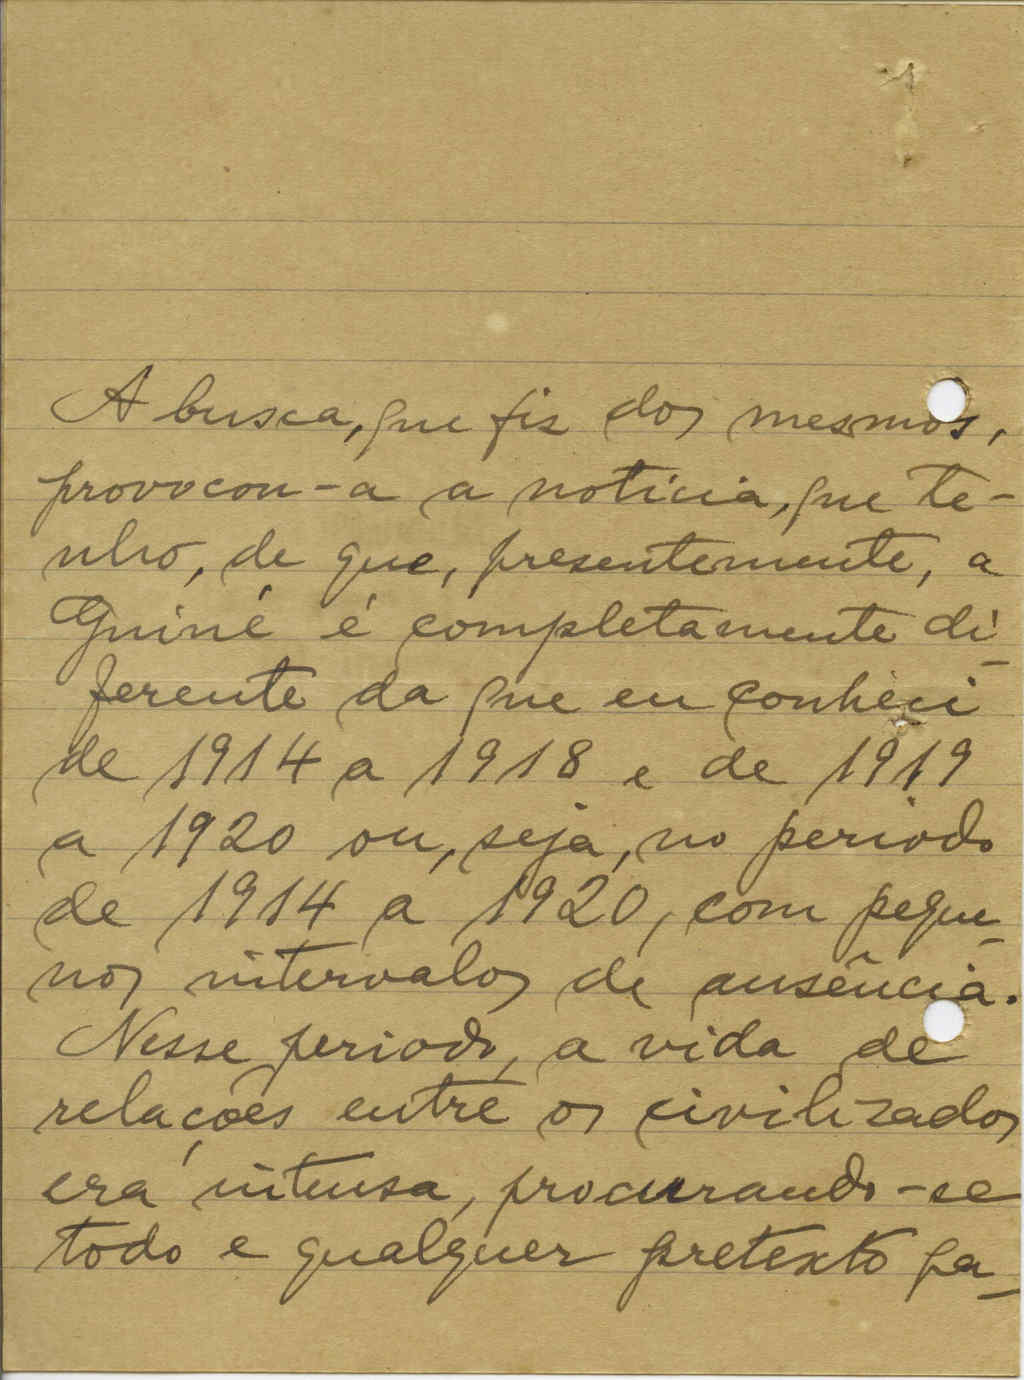 A busca, que fiz dos mesmos,
provocou-a a noticia, que te-
nho, de que, presentemente, a
Guiné é completamente di-
ferente da que eu conheci
de 1914 a 1918 e de 1919
a 1920 ou, seja, no periodo
de 1914 a 1920, com peque-
nos intervalos de ausência.
Nesse periodo, a vida de
relações entre os civilizados
era intensa, procurando-se
todo e qualquer pretexto pa-